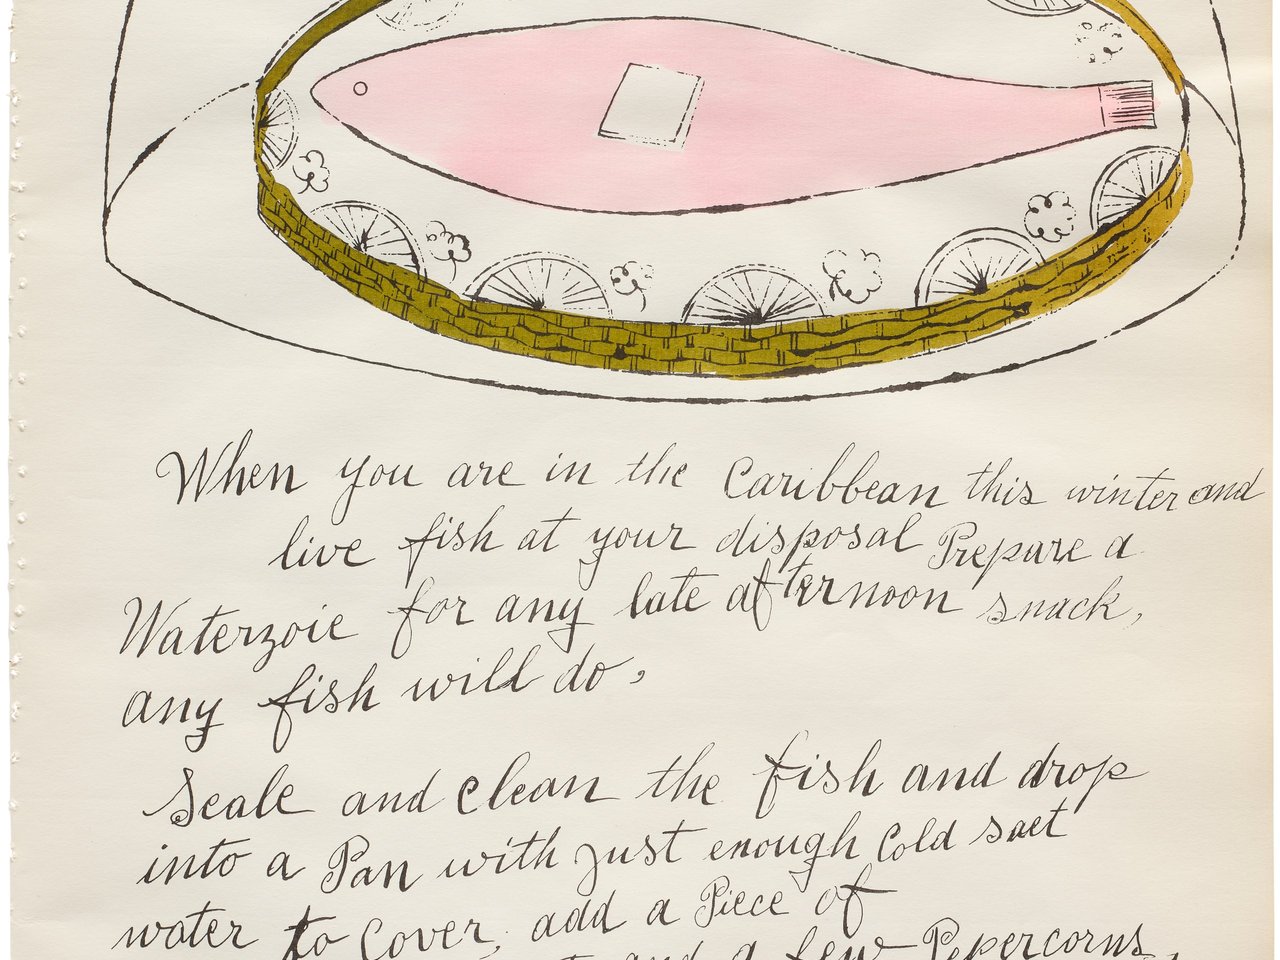 When you are in the Caribbean this winter and
live fish at your disposal Prepare a
Waterzoie for any late afternoon snack,
any fish will do,
Scale and clean the fish and drop
into a Pan with just enough Cold saet
water to Cover, add a Piece of
and a few Pepercorns,